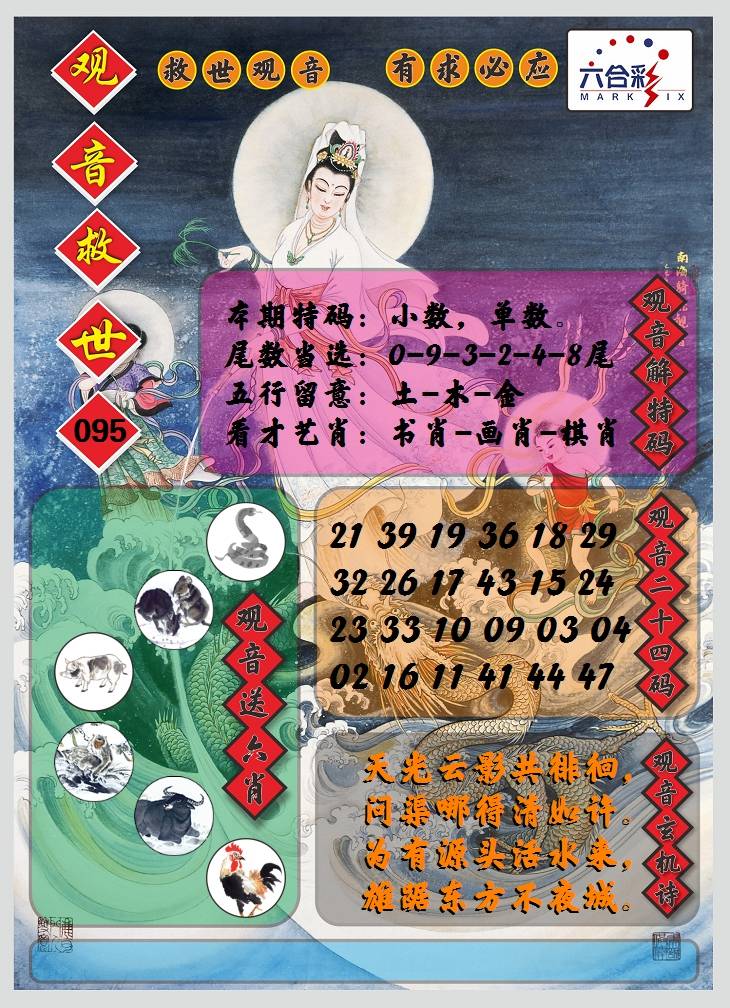 观音救世
095
救世观音 有求必应
六合彩
MARK SIX
本期特码：小数，单数。
尾数当选：0-9-3-2-4-8尾
五行留意：土-木-金
看才艺肖：书肖-画肖-棋肖
观音解特码
观音送六肖
21 39 19 36 18 29
32 26 17 43 15 24
23 33 10 09 03 04
02 16 11 41 44 47
观音二十四码
天光云影共徘徊，
问渠哪得清如许。
为有源头活水来，
雄踞东方不夜城。
观音玄机诗